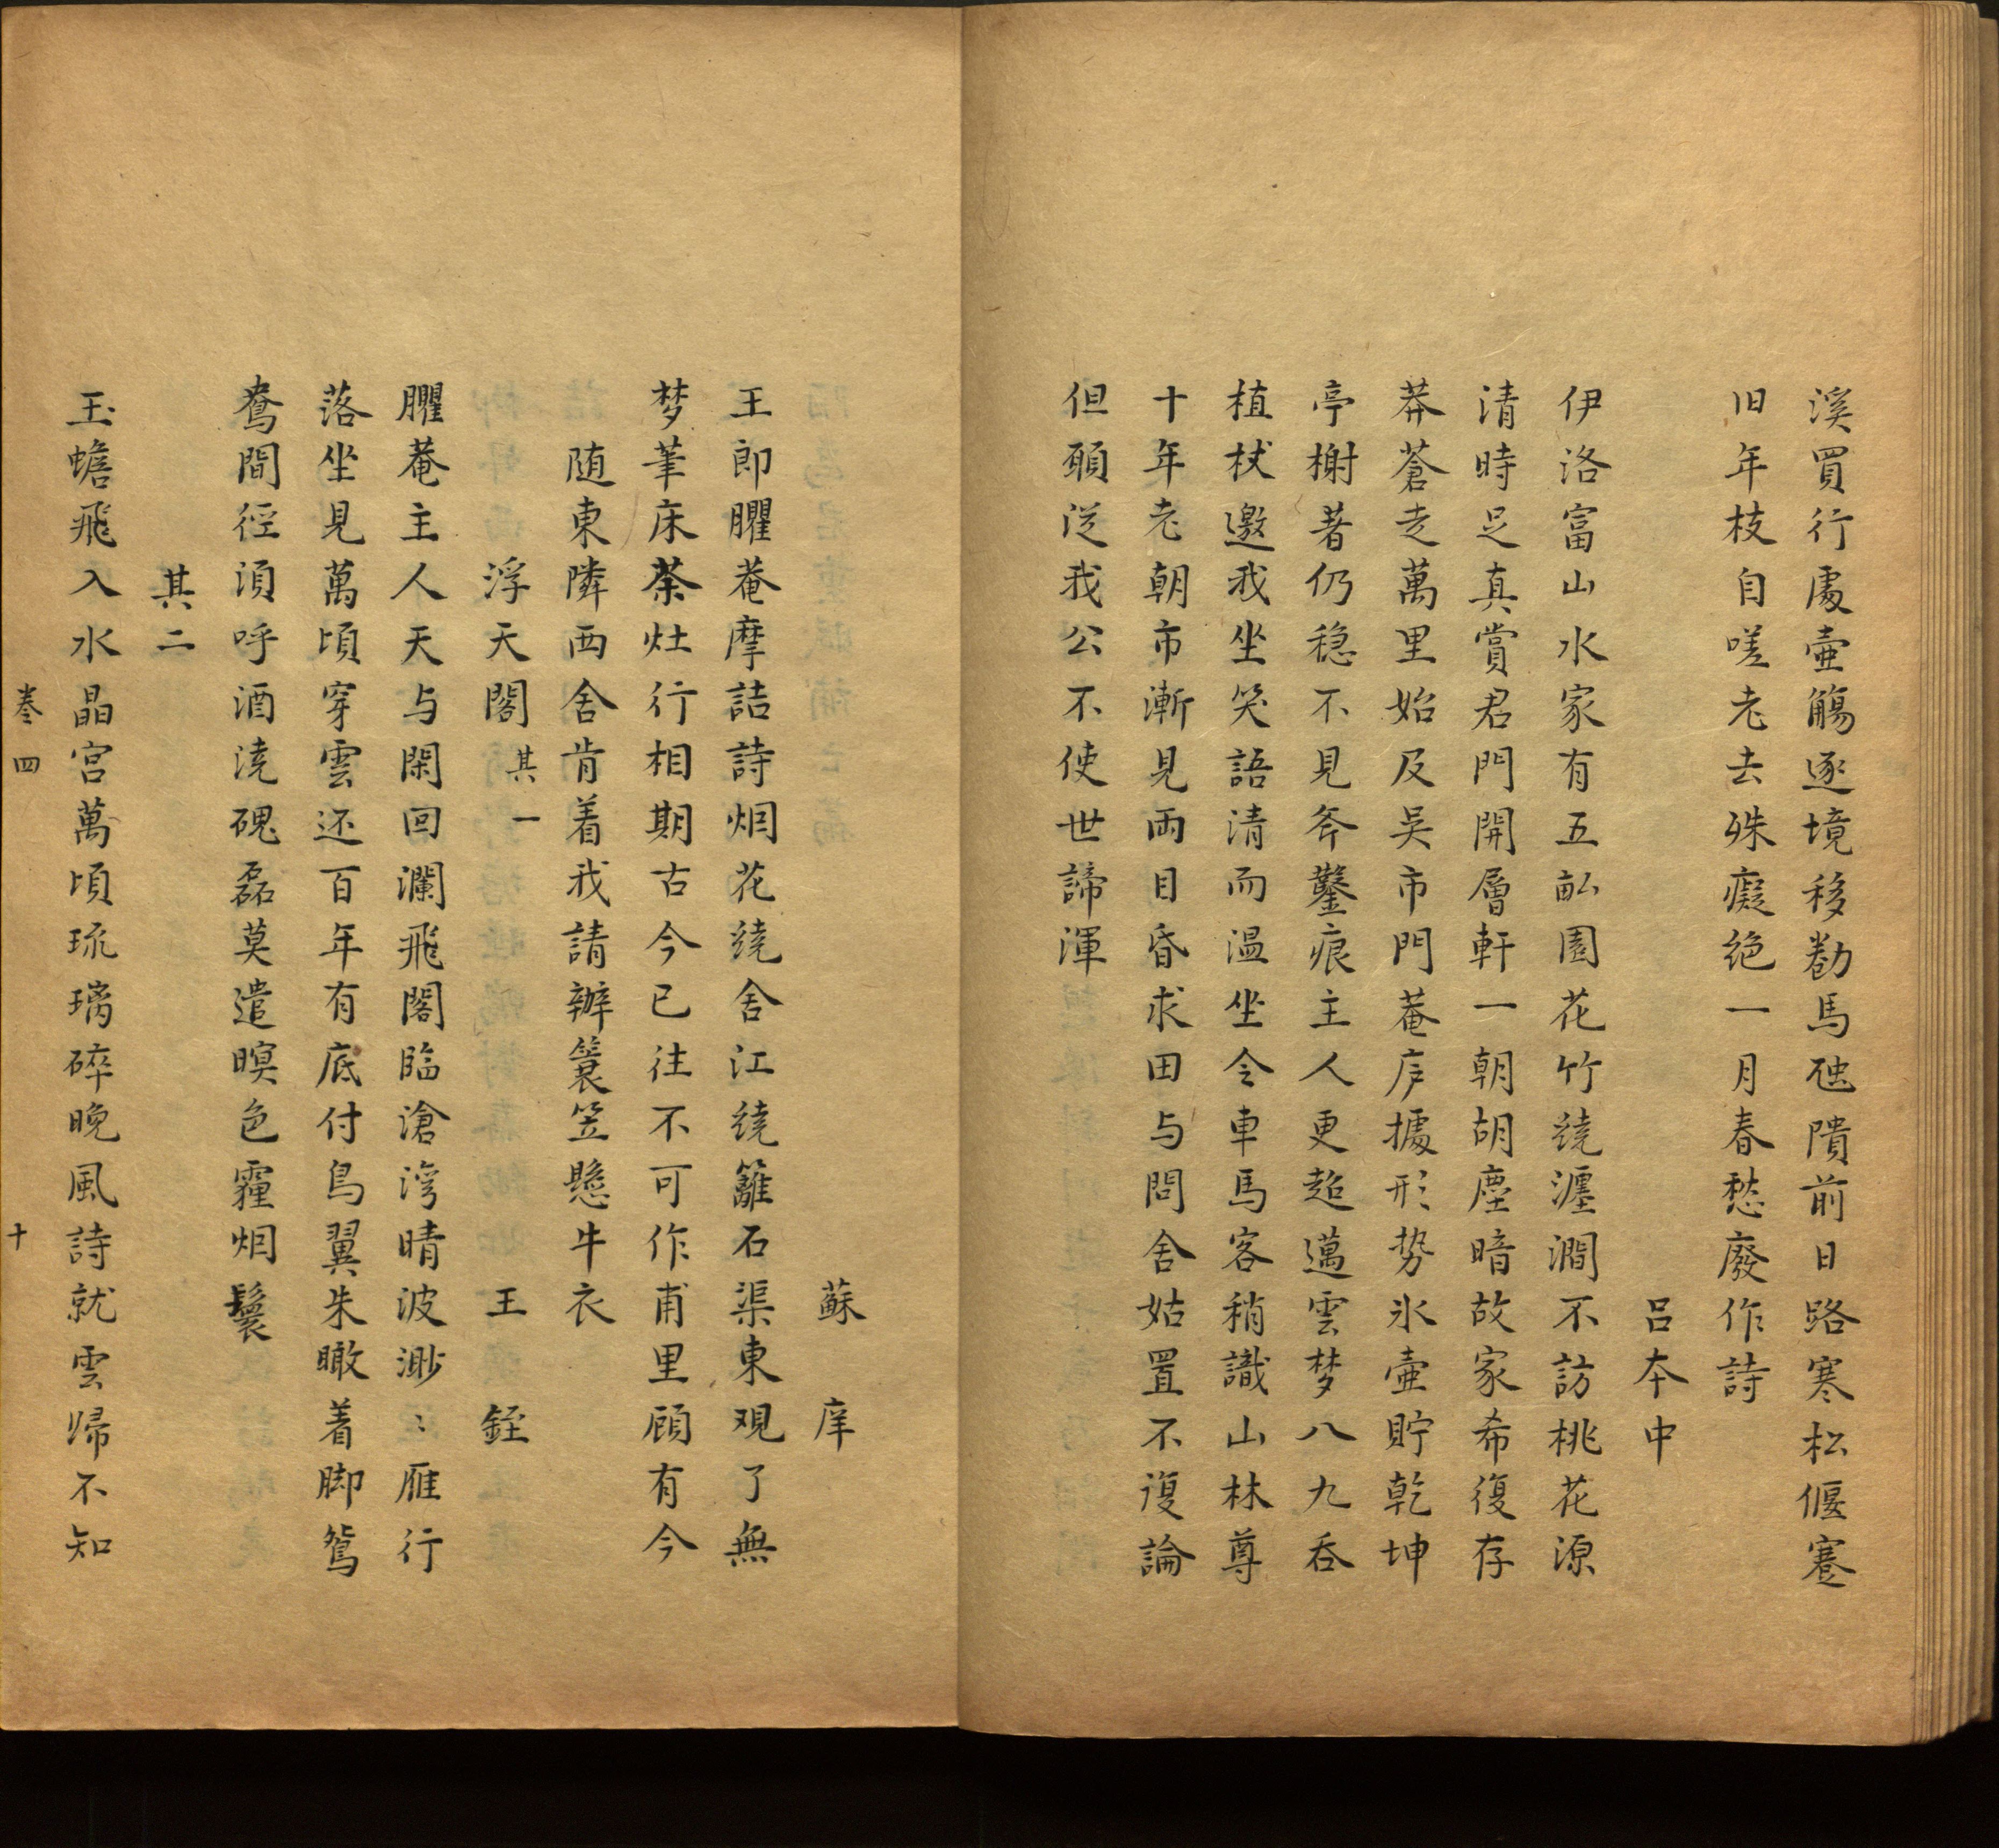 溪買行處壺觴逐境移勸馬虺隤前日路寒松偃蹇
旧年枝自嗟老去殊癡絶一月春愁廢作詩
呂本中
伊洛富山水家有五畆園花竹繞瀍澗不訪桃花源
清時足真賞君門開層軒一朝胡塵暗故家希復存
莽蒼走萬里始及吴市門菴庐據形势氷壺貯乾坤
亭榭著仍穏不見斧鑿痕主人更超邁雲梦八九吞
植杖邀我坐笑語清而温坐令車馬客稍識山林尊
十年老朝市漸見両目昏求田与問舍姑置不復論
但願従我公不使世諦渾
蘇庠
王郎臞菴摩詰詩烟花繞舍江繞籬石渠東观了無
梦筆床茶灶行相期古今已往不可作甫里顾有今
随東隣西舍肯着我請辦簑笠懸牛衣
浮天閣其一 王銍
臞菴主人天与閑回瀾飛閣臨滄湾晴波渺〻雁行
落坐見萬頃穿雲还百年有底付鳥翼朱瞰着脚鴛
鴦間徑須呼酒澆磈磊莫遣暝色霾烟鬟
其二
玉蟾飛入水晶宮萬頃琉璃碎晚風詩就雲歸不知
卷四 十